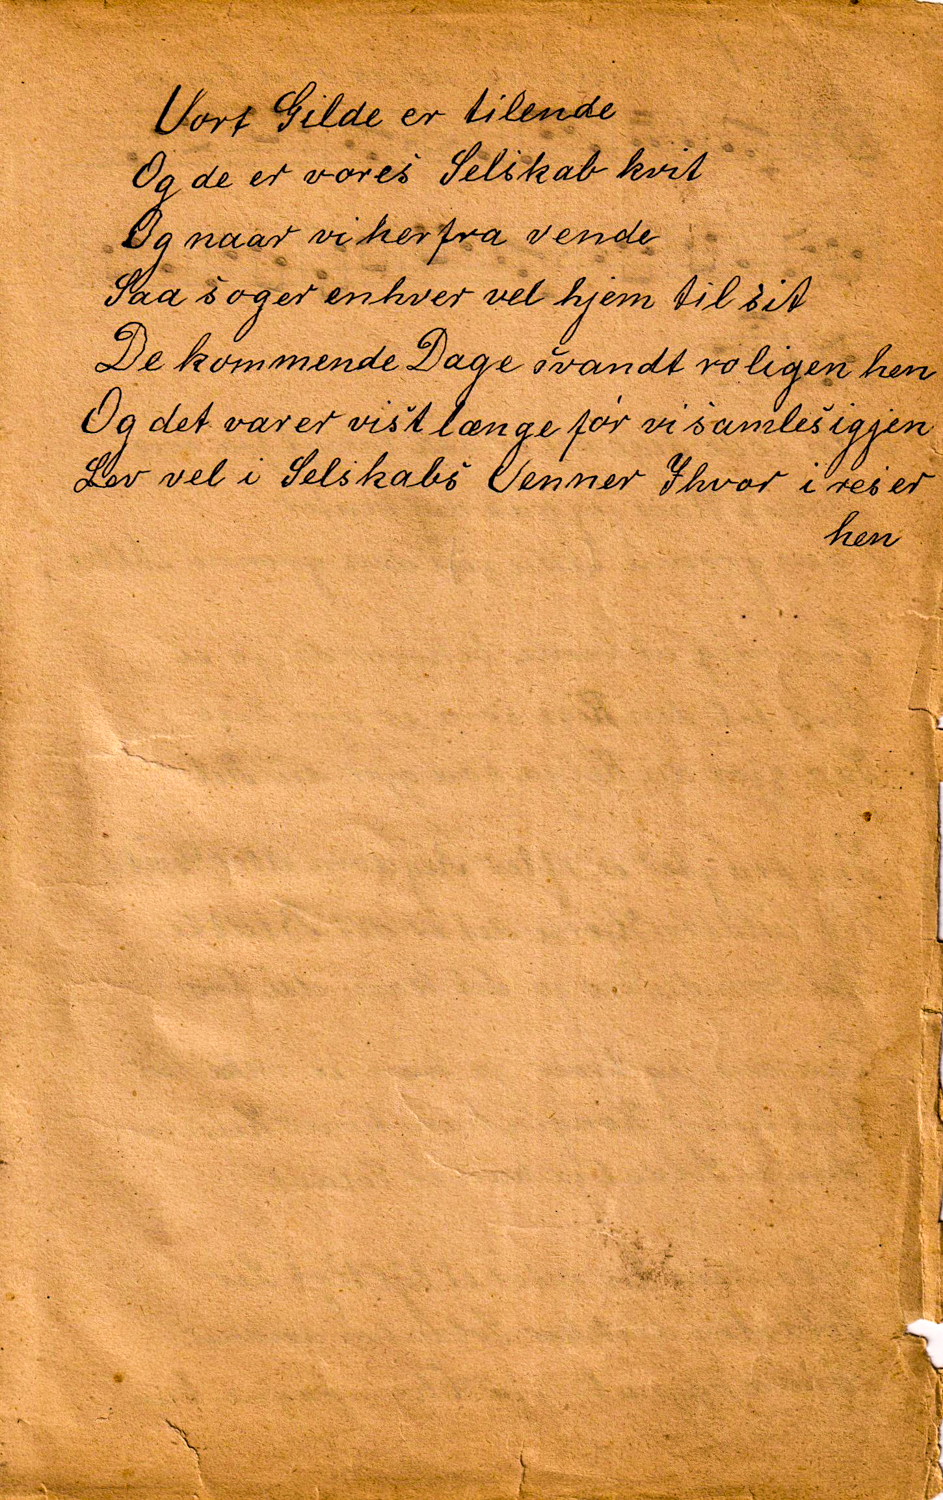 Vort Gilde er tilende
Og de er vores Selskab kvit
Og naar vi herfra vende
Saa soger enhver vel hjem til sit
De kommende Dage svandt roligen hen
Og det varer vist længe før vi samles igjen
Lev vel i Selskabs Venner Ihvor i reiser
hen